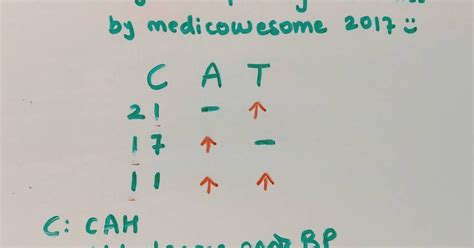 by medicowesome 2017 :)
C A T
21 - ↑
17 ↑ -
11 ↑ ↑
C: CAH
BP